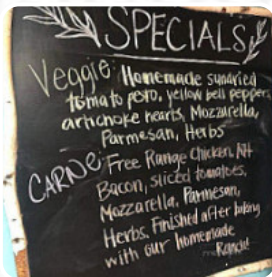 SPECIALS
Veggie: Homemade sundried
tomato pesto, yellow bell pepper,
artichoke hearts, Mozzarella,
Parmesan, Herbs
CARNE: Free Range Chicken, NH
Bacon, sliced tomatoes,
Mozzarella, Parmesan,
Herbs. Finished after baking
with our homemade
Ranch!